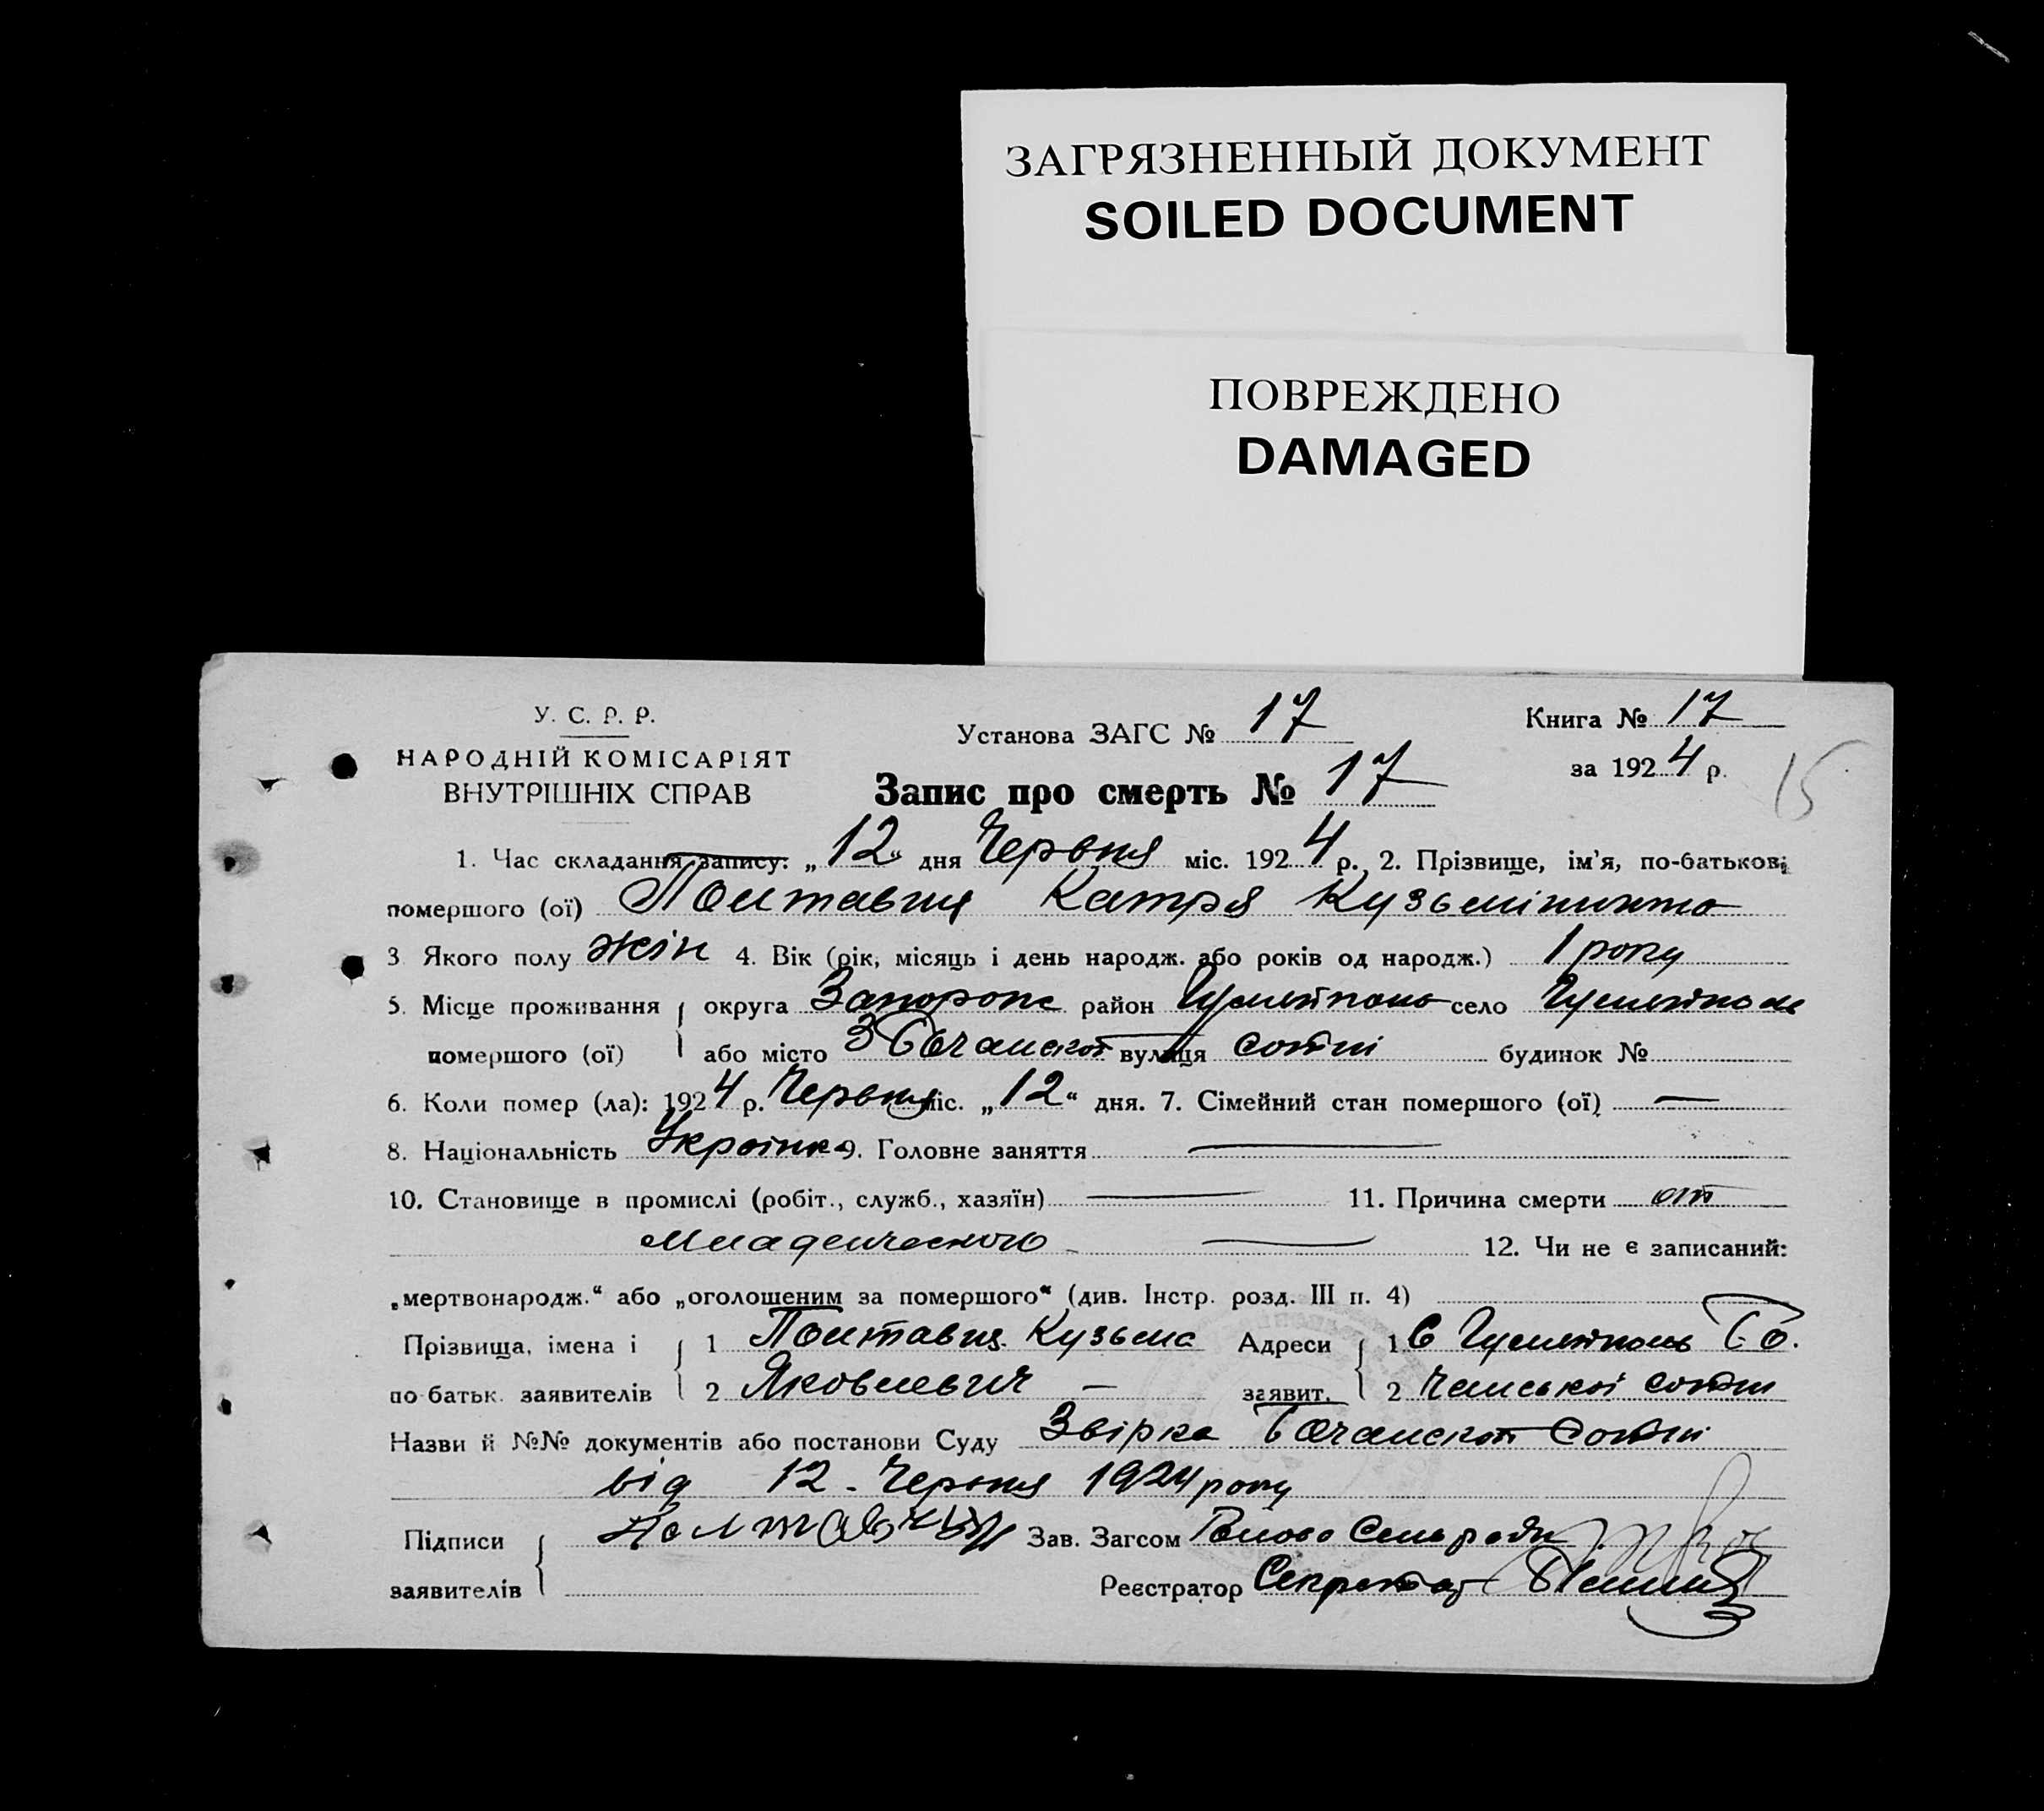 ЗАГРЯЗНЕННЫЙ ДОКУМЕНТ
SOILED DOCUMENT
ПОВРЕЖДЕНО
DAMAGED
У. С. Р. Р.
НАРОДНІЙ КОМІСАРІЯТ
ВНУТРІШНІХ СПРАВ
Установа ЗАГС № 17
Книга № 17
за 1924 р.
15
Запис про смерть № 17
1. Час складання запису: „12“ дня Червня міс. 1924 р. 2. Прізвище, ім’я, по-батькові
помершого (ої) Полтавця Катря Кузьмінична
3 Якого полу жін 4. Вік (рік, місяць і день народж. або років од народж.) 1 року
5. Місце проживання округа Запорож район Гуляйполь село Гуляйполь
помершого (ої) або місто вулиця сотні будинок №
6. Коли помер (ла): 1924 р. Червня міс. „12“ дня. 7. Сімейний стан помершого (ої) —
8. Національність Українка 9. Головне заняття —
10. Становище в промислі (робіт., служб., хазяїн) — 11. Причина смерти от
младенческого — 12. Чи не є записаний:
„мертвонародж.“ або „оголошеним за помершого“ (див. Інстр. розд. III п. 4)
Прізвища, імена і 1 Полтавця Кузьма Адреси 1 С Гуляйполь
по батьк. заявителів 2 Яковлевич — заявит. 2 сотні
Назви й №№ документів або постанови Суду сотні
від 12 Червня 1924 року
Підписи Зав. Загсом Голова Сельради
заявителів Реєстратор Секретар